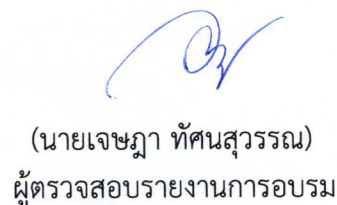 (นายเจษฎา ทัศนสุวรรณ)
ผู้ตรวจสอบรายงานการอบรม